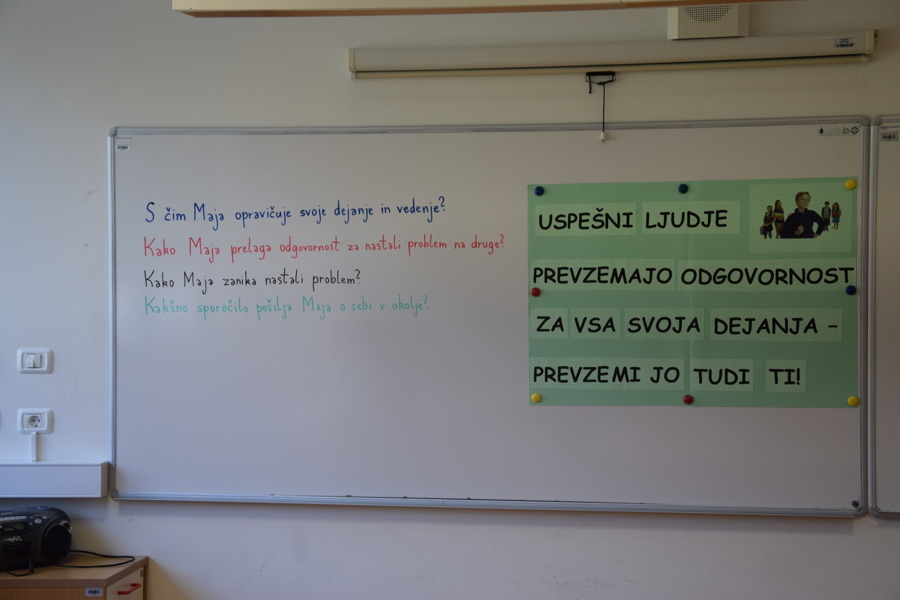 S čim Maja opravičuje svoje dejanje in vedenje?
Kako Maja prelaga odgovornost za nastali problem na druge?
Kako Maja zanika nastali problem?
Kakšno sporočilo pošilja Maja o sebi v okolje?
USPEŠNI LJUDJE
PREVZEMAJO ODGOVORNOST
ZA VSA SVOJA DEJANJA –
PREVZEMI JO TUDI TI!